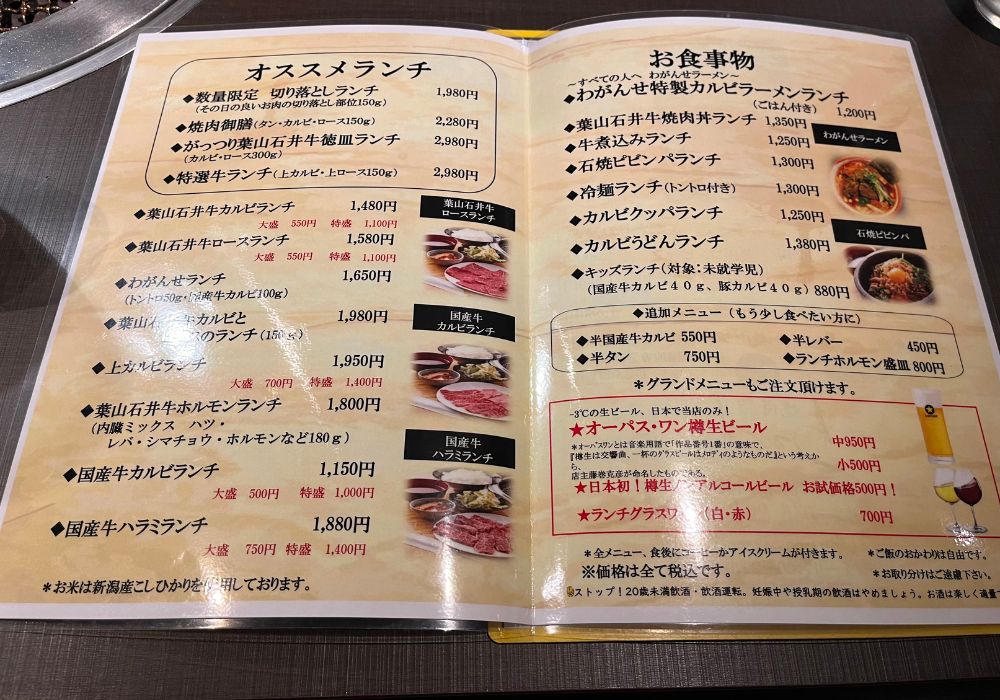 オススメランチ
◆数量限定 切り落としランチ 1,980円
(その日の良いお肉の切り落とし部位150g)
◆焼肉御膳(タン・カルビ・ロース150g) 2,280円
◆がっつり葉山石井牛徳皿ランチ 2,980円
(カルビ・ロース300g)
◆特選牛ランチ(上カルビ・上ロース150g) 2,980円
◆葉山石井牛カルビランチ 1,480円
大盛 550円 特盛 1,100円
◆葉山石井牛ロースランチ 1,580円
大盛 550円 特盛 1,100円
◆わがんせランチ 1,650円
(トントロ50g・国産牛カルビ100g)
◆葉山石井牛カルビと 1,980円
のランチ(150g)
◆上カルビランチ 1,950円
大盛 700円 特盛 1,400円
◆葉山石井牛ホルモンランチ 1,800円
(内臓ミックス ハツ・
レバ・シマチョウ・ホルモンなど180g)
◆国産牛カルビランチ 1,150円
大盛 500円 特盛 1,000円
◆国産牛ハラミランチ 1,880円
大盛 750円 特盛 1,400円
*お米は新潟産こしひかりを使用しております。
葉山石井牛
ロースランチ
国産牛
カルビランチ
国産牛
ハラミランチ
お食事物
~すべての人へ わがんせラーメン~
◆わがんせ特製カルビラーメンランチ
(ごはん付き) 1,200円
◆葉山石井牛焼肉丼ランチ 1,350円
◆牛煮込みランチ 1,250円
◆石焼ビビンパランチ 1,300円
◆冷麺ランチ(トントロ付き) 1,300円
◆カルビクッパランチ 1,250円
◆カルビうどんランチ 1,380円
◆キッズランチ(対象:未就学児)
(国産牛カルビ40g、豚カルビ40g) 880円
わがんせラーメン
石焼ビビンパ
◆追加メニュー(もう少し食べたい方に)
◆半国産牛カルビ 550円 ◆半レバー 450円
◆半タン 750円 ◆ランチホルモン盛皿 800円
*グランドメニューもご注文頂けます。
-3℃の生ビール、日本で当店のみ!
★オーパス・ワン樽生ビール 中950円
*オーパスワンとは音楽用語で「作品番号1番」の意味で、
『樽生は交響曲、一杯のグラスビールはメロディのようなものだ』という考えか
ら、 小500円
店主藤巻克彦が命名したものである。
★日本初!樽生ノンアルコールビール お試価格500円!
★ランチグラスワイン(白・赤) 700円
*全メニュー、食後にコーヒーかアイスクリームが付きます。 *ご飯のおかわりは自由です。
※価格は全て税込です。 *お取り分けはご遠慮下さい。
ストップ!20歳未満飲酒・飲酒運転。妊娠中や授乳期の飲酒はやめましょう。お酒は楽しく適量で